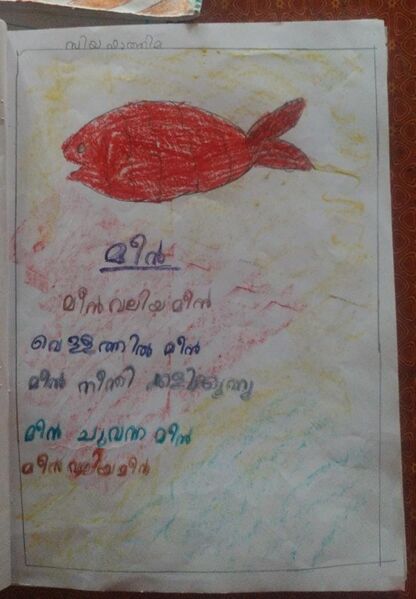 സിയ ഫാത്തിമ
മീൻ
മീൻ വലിയ മീൻ
വെള്ളത്തിൽ മീൻ
മീൻ നീന്തി കളിക്കുന്നു
മീൻ ചുവന്ന മീൻ
മീൻ വലിയ മീൻ